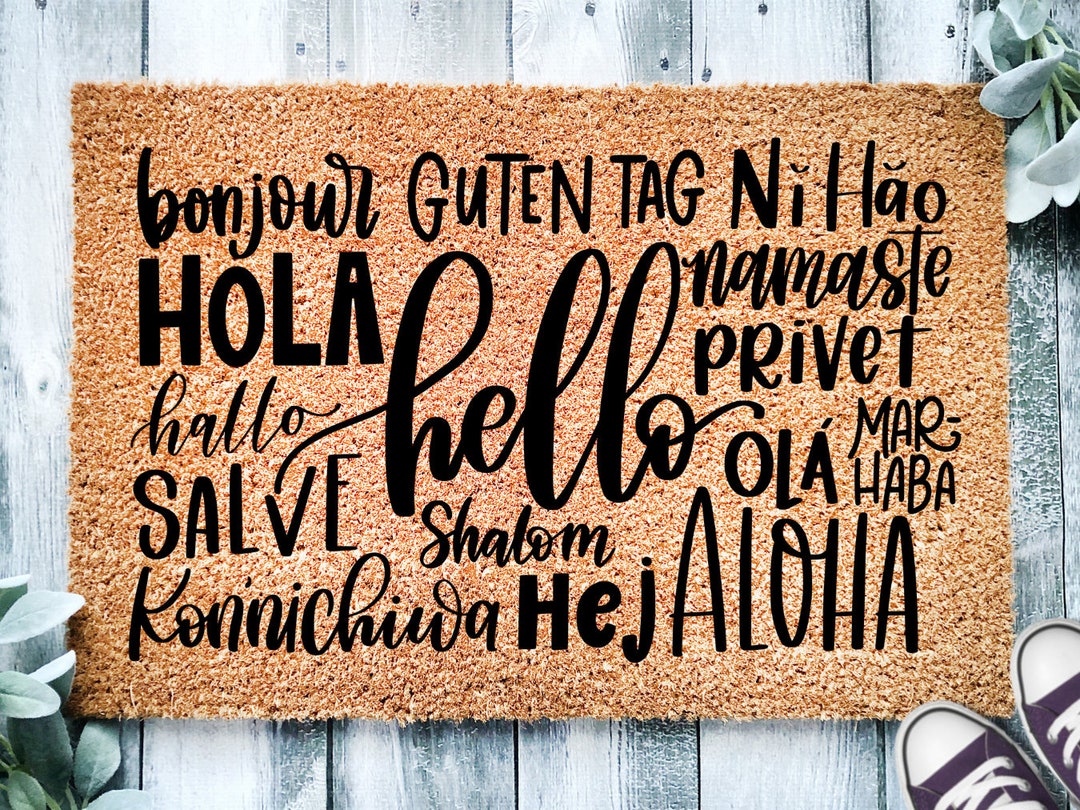 bonjour GUTEN TAG Nǐ Hǎo
HOLA hello namaste
PRIVET
hallo OLÁ MAR-
HABA
SALVE Shalom ALOHA
Kon'nichiwa Hej